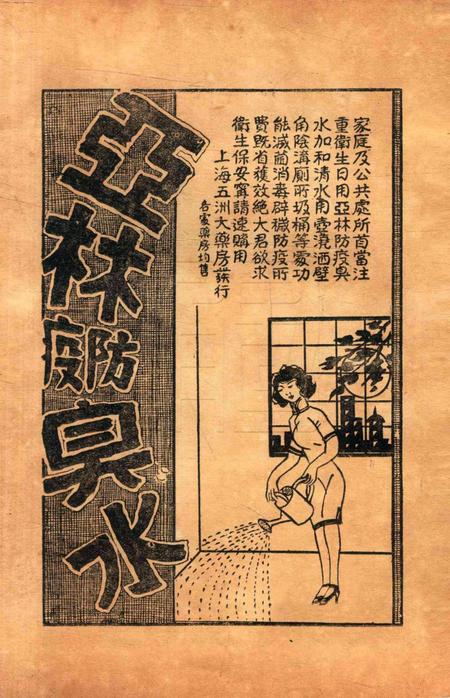 家庭及公共處所首當注
重衛生日用亞林防疫臭
水加和清水用壺澆洒壁
角陰溝廁所圾桶等處功
能滅菌消毒辟穢防疫所
費既省獲效絶大君欲求
衛生保安寗請速購用
上海五洲大藥房發行
各家藥房均售
亞林
防疫
臭水